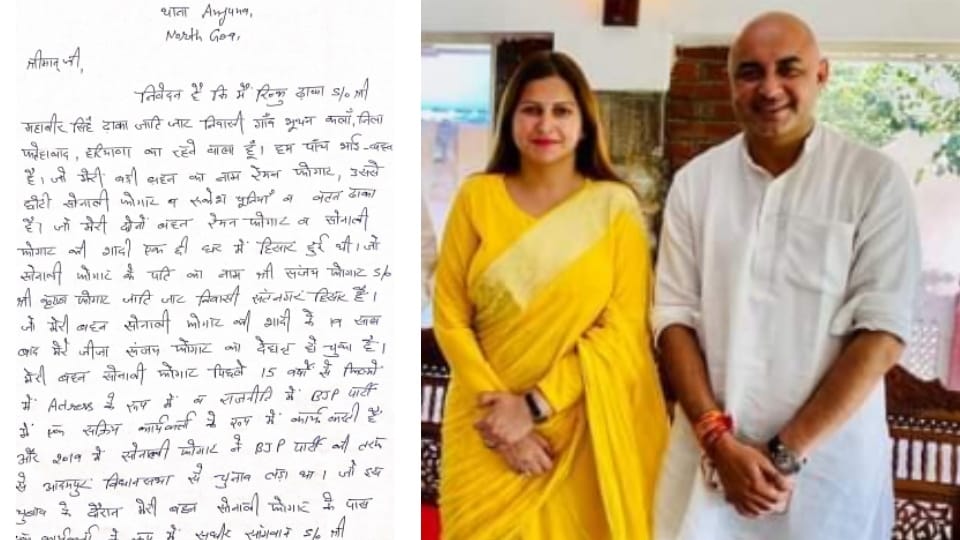 थाना Anjuna,
North Goa,
श्रीमान् जी,
निवेदन है कि मैं रिन्कु ढाका S/o श्री
महाबीर सिंह ढाका जाति जाट निवासी गाँव भूथन कलाँ, जिला
फतेहाबाद, हरियाणा का रहने वाला हूँ। हम पाँच भाई-बहन
है। जो मेरी बडी बहन का नाम रेमन फोगाट, उससे
छोटी सोनाली फोगाट व रूकेश पूनियाँ व वतन ढाका
है। जो मेरी दोनों बहन रेमन फोगाट व सोनाली
फोगाट की शादी एक ही घर में हिसार हुई थी। जो
सोनाली फोगाट के पति का नाम श्री संजय फोगाट S/o
श्री कृष्ण फोगाट जाति जाट निवासी संतनगर हिसार है।
जो मेरी बहन सोनाली फोगाट की शादी के 19 साल
बाद मेरे जीजा संजय फोगाट का देहान्त हो चुका है।
मेरी बहन सोनाली फोगाट पिछले 15 वर्षों से फिल्मों
में Actress के रूप में व राजनीति में BJP पार्टी
में एक सक्रिय कार्यकर्ता के रूप में कार्य करती है
और 2019 में सोनाली फोगाट ने BJP पार्टी की तरफ
से आदमपुर विधानसभा से चुनाव लड़ा था। जो इस
चुनाव के दौरान मेरी बहन सोनाली फोगाट के पास
कार्यकर्ता के रूप में सुधीर सांगवान S/o श्री